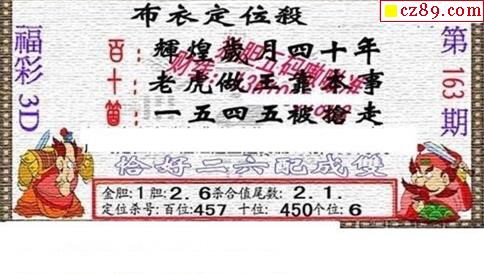 cz89.com
布衣定位殺
福彩3D
百：輝煌歲月四十年
十：老虎做王靠本事
個：一五四五被搶走
第163期
恰好二六配成雙
金胆:1胆:2.6杀合值尾数:2.1.
定位杀号:百位:457 十位:450个位:6